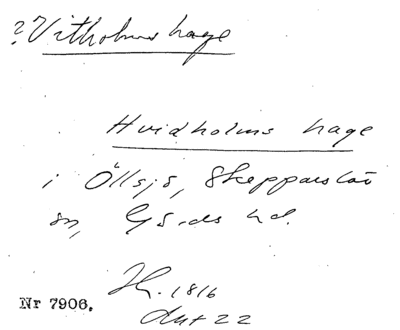 ? Vitholms hage
Hvidholms hage
i Öllsjö, Skepparslöv
sn, Gärds hd.
Nr 7906.
1816
Akt 22